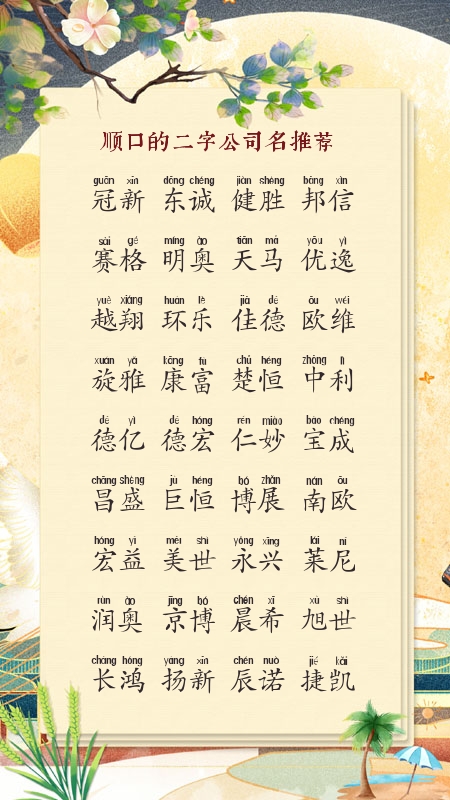 顺口的二字公司名推荐
guān xīn dōng chéng jiàn shèng bāng xìn
冠新 东诚 健胜 邦信
sài gé míng ào tiān mǎ yōu yì
赛格 明奥 天马 优逸
yuè xiáng huán lè jiā dé ōu wéi
越翔 环乐 佳德 欧维
xuán yǎ kāng fù chǔ héng zhōng lì
旋雅 康富 楚恒 中利
dé yì dé hóng rén miào bǎo chéng
德亿 德宏 仁妙 宝成
chāng shèng jù héng bó zhǎn nán ōu
昌盛 巨恒 博展 南欧
hóng yì měi shì yǒng xīng lái ní
宏益 美世 永兴 莱尼
rùn ào jīng bó chén xī xù shì
润奥 京博 晨希 旭世
cháng hóng yáng xīn chén nuò jié kǎi
长鸿 扬新 辰诺 捷凯